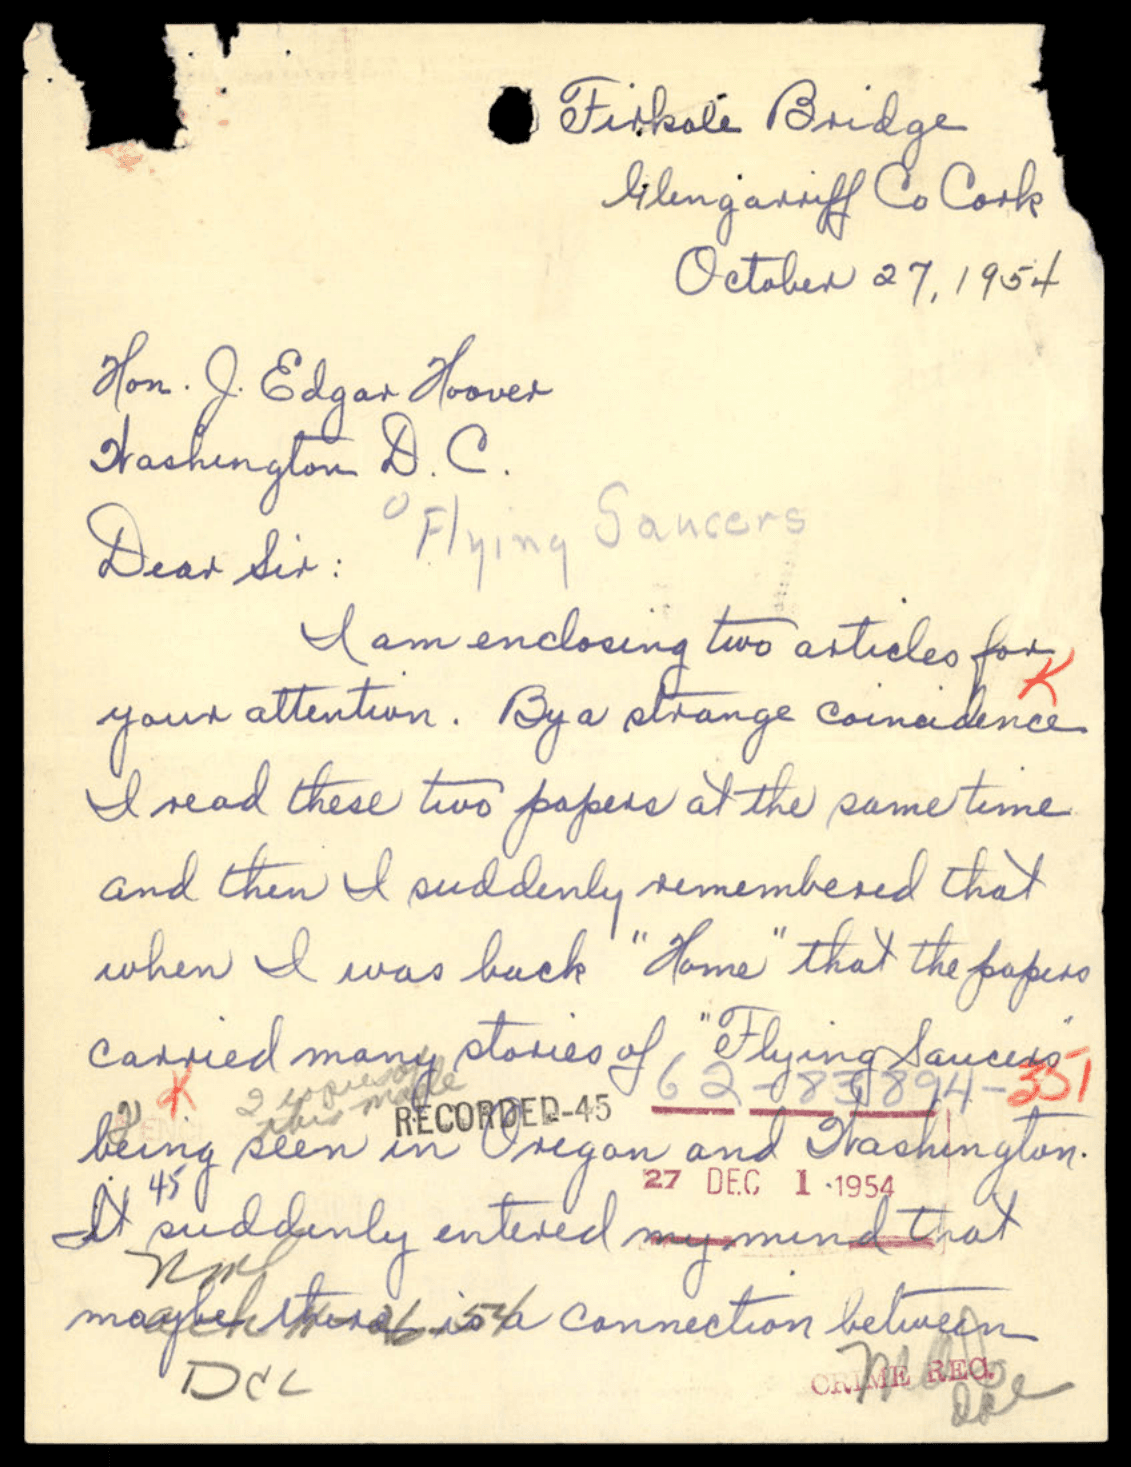 Firkole Bridge
Glengarriff Co Cork
October 27, 1954
Hon. J. Edgar Hoover
Washington D. C.
Flying Saucers
Dear Sir:
I am enclosing two articles for
K
your attention. By a strange coincidence
I read these two papers at the same time
and then I suddenly remembered that
when I was back "Home" that the papers
carried many stories of, "Flying Saucers"
K
2 copies of
this made
RECORDED-45
62-83894-351
being seen in Oregon and Washington.
45
27 DEC 1 1954
It suddenly entered my mind that
maybe there is a connection between
ack 11-26-54
DCL
CRIME REC.